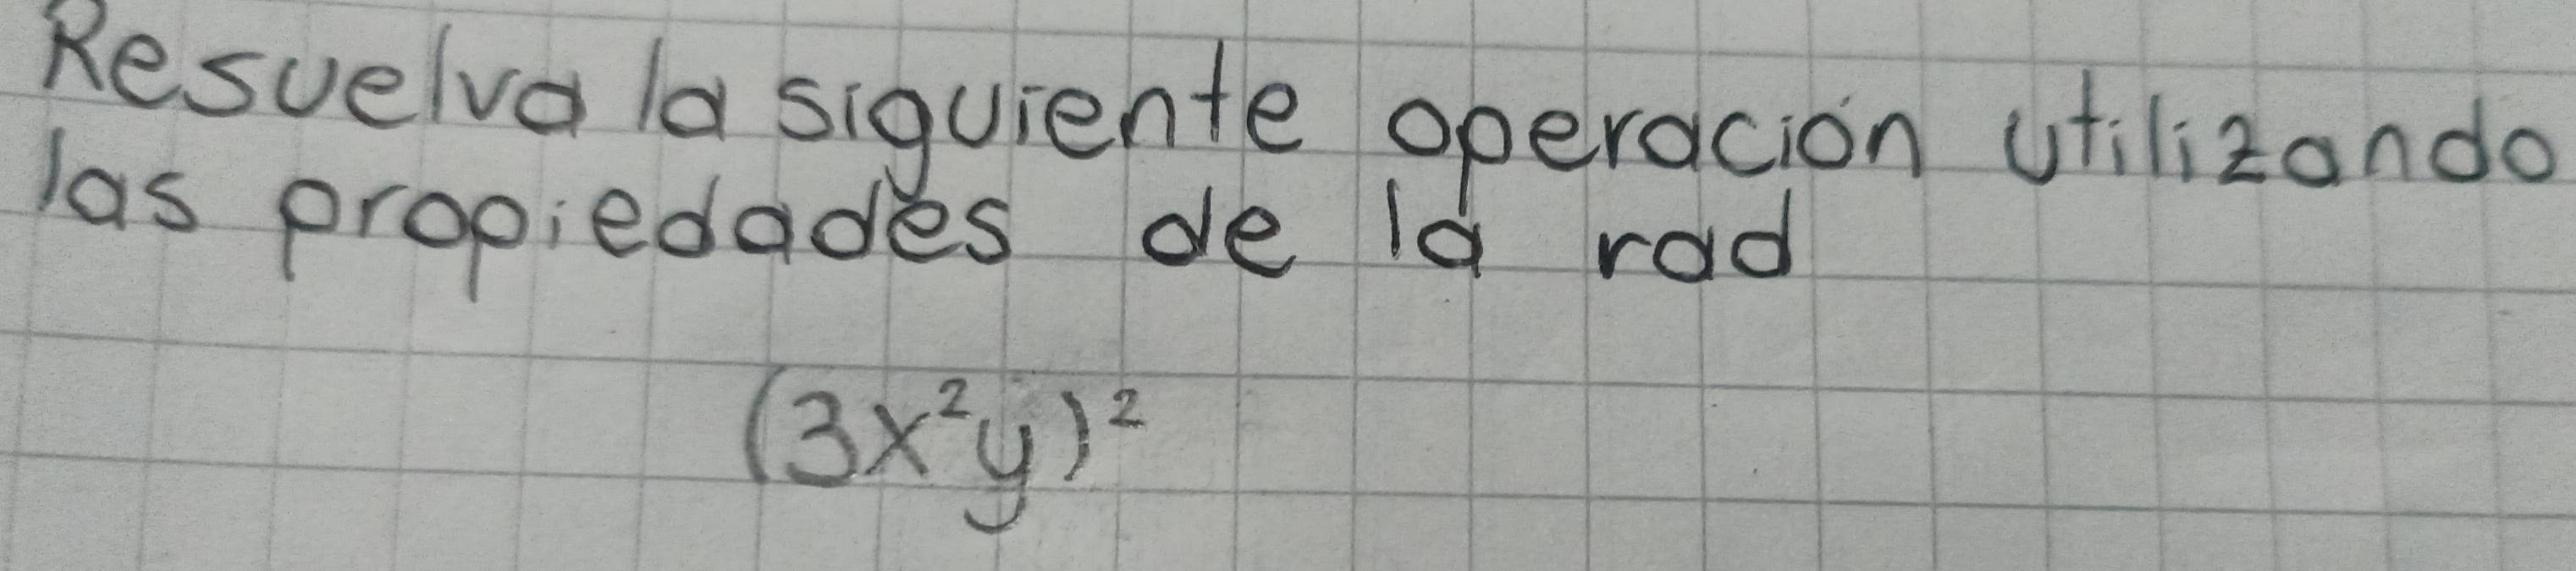 Resuelva la siguiente operación utilizando
las propiedades de la rad
(3x²y)²